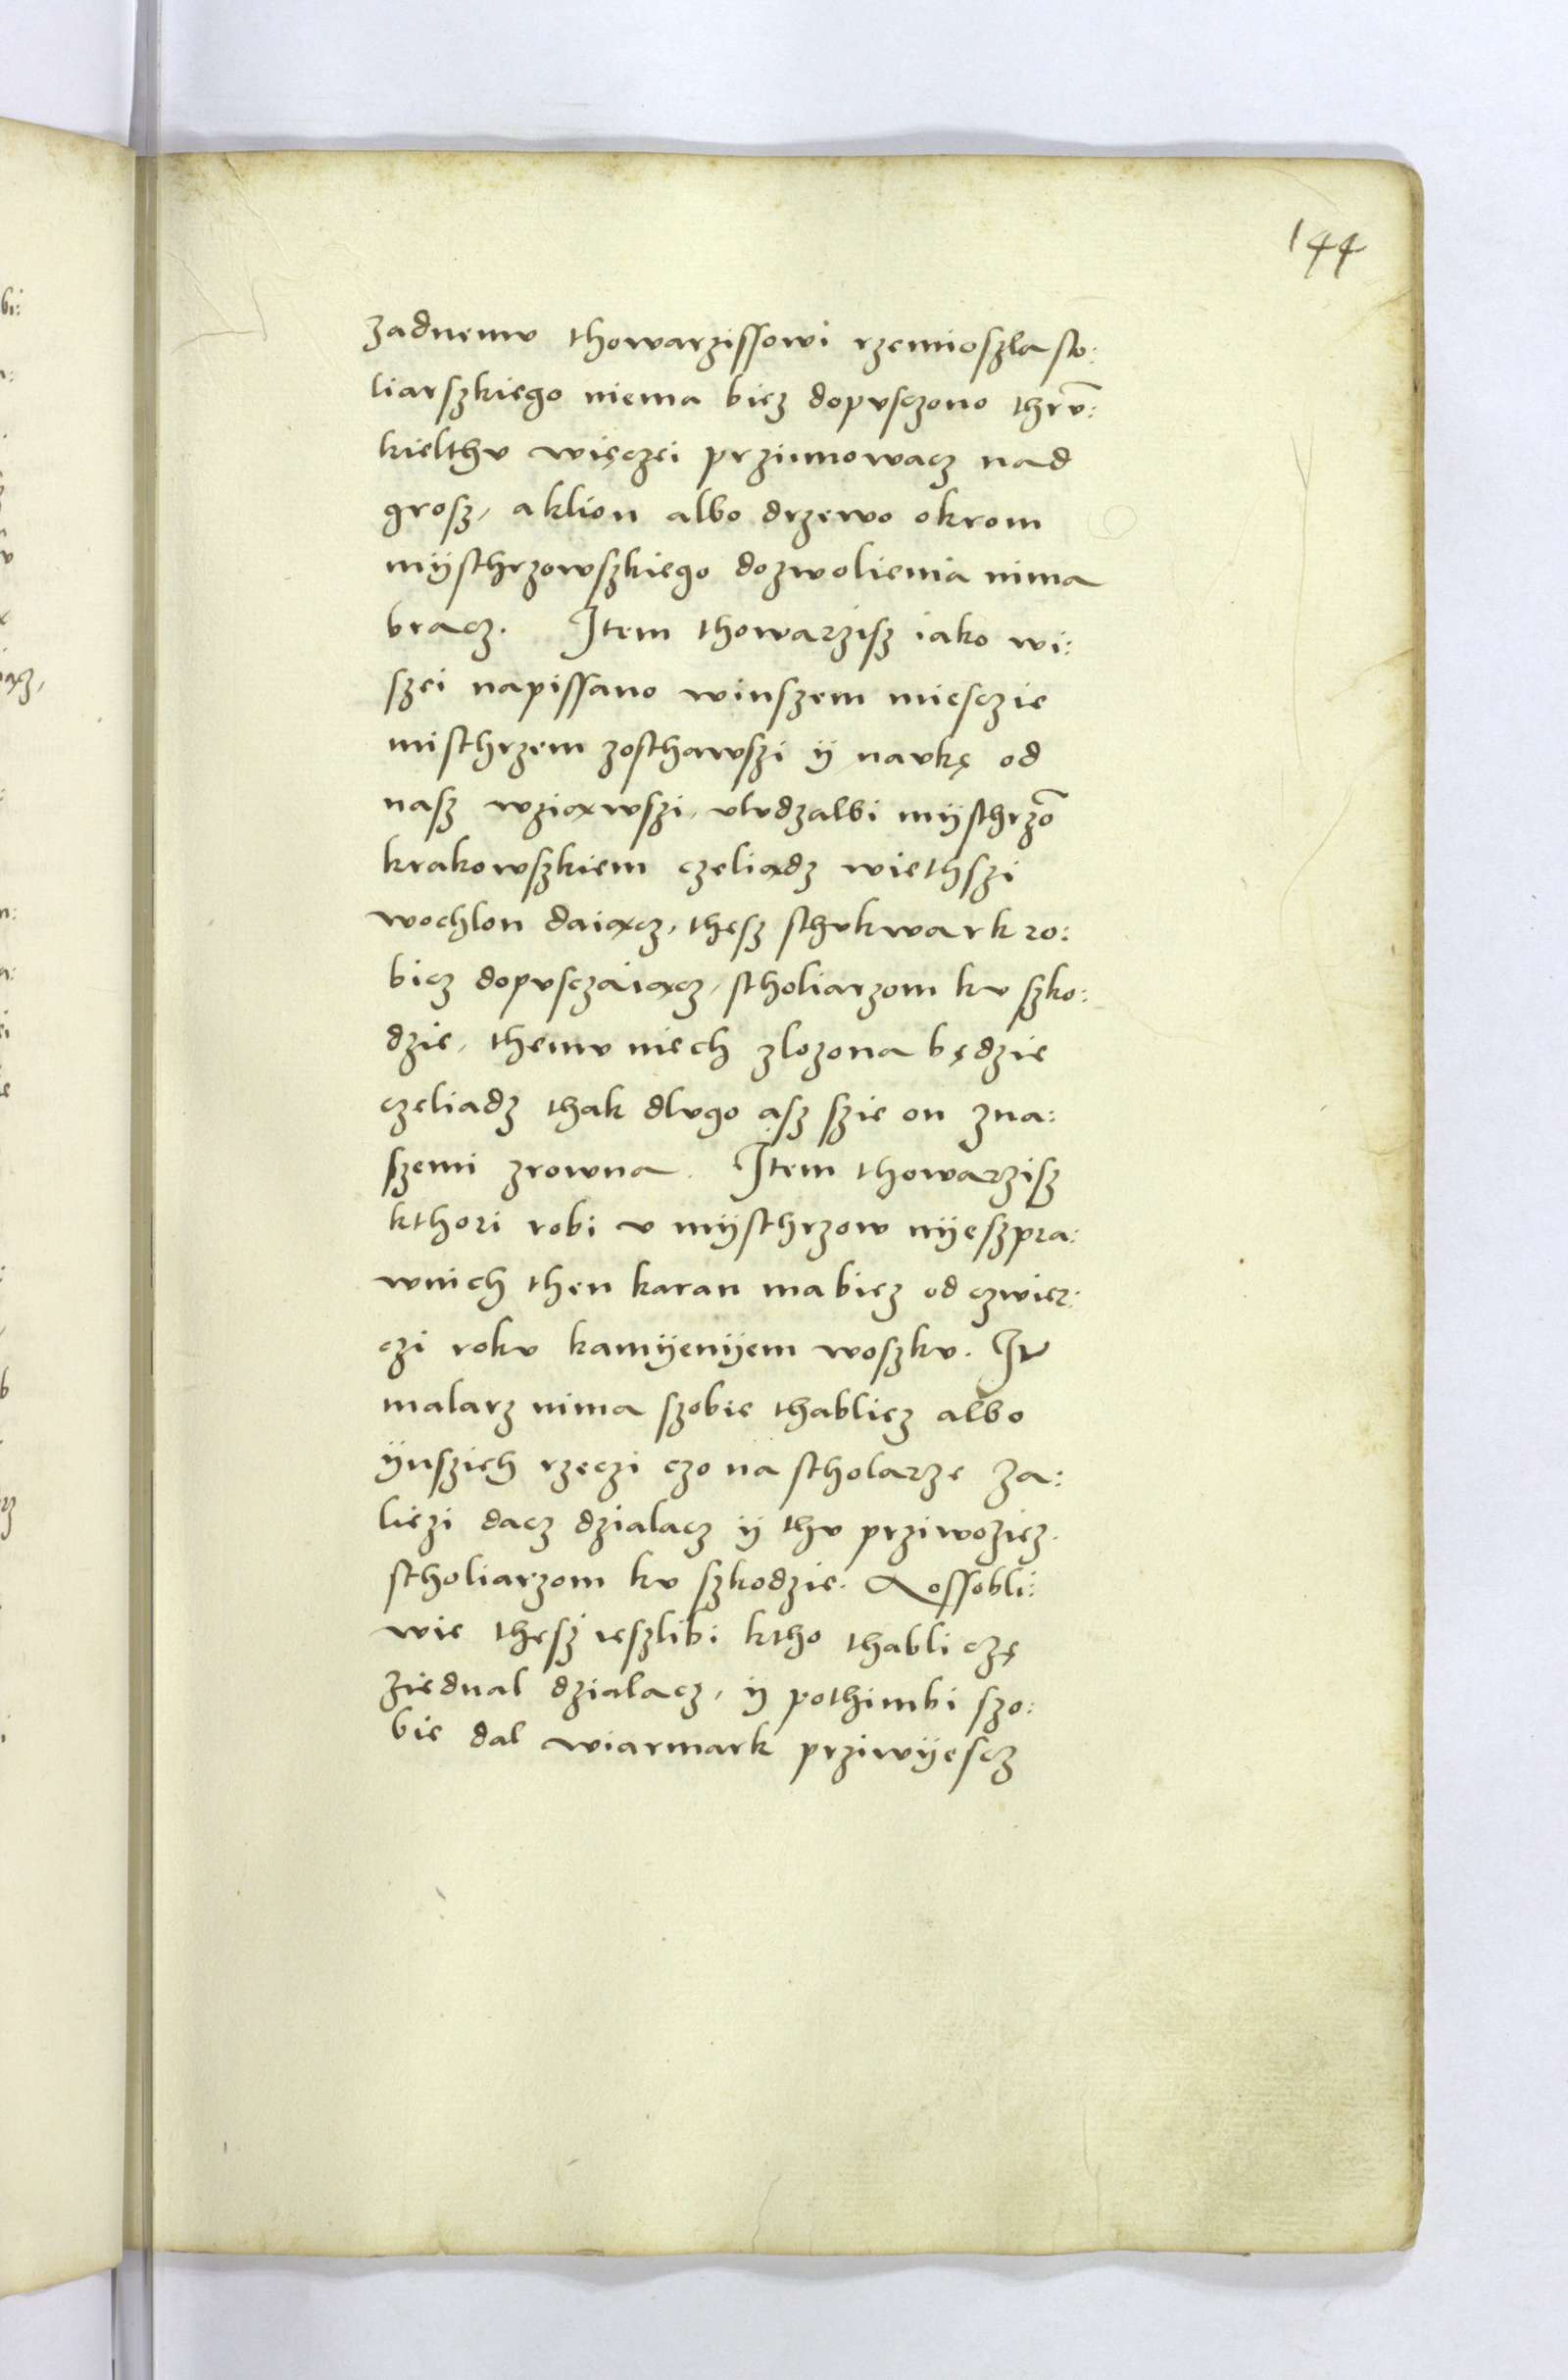 144
zadnemv thowarzissowi rzemioszla sto:
liarszkiego niema bicz dopvsczono thrv̄:
kielthv więczei prziimowacz nad
grosz, aklion albo drzewo okrom
mÿsthrzowszkiego dozwolienia nima
bracz. Item thowarzisz iako wi:
szei napissano winszem miesczie
misthrzem zosthawszi ÿ navkę od
nasz wziąwszi, vlvdzalbi mÿsthrzō
krakowszkiem czeliadz wiethszi
wochlon daiącz, thesz sthvkwark ro:
bicz dopvsczaiącz, stholiarzom kv szko:
dzie, themv niech zlozona będzie
czeliadz thak dlvgo asz szie on zna:
szemi zrowna. Item thowarzisz
kthori robi v mÿsthrzow nÿeszpra:
wnich then karan ma bicz od czwier:
czi rokv kamÿenÿem woszkv. It
malarz nima szobie thablicz albo
ÿnszich rzeczi czo na stholarze za:
liezi dacz dzialacz ÿ thv prziwozicz.
stholiarzom kv szkodzie. A ossobli:
wie thesz ieszlibi ktho thabliczę
ziednal dzialacz, ÿ pothimbi szo:
bie dal wiarmark prziwÿescz